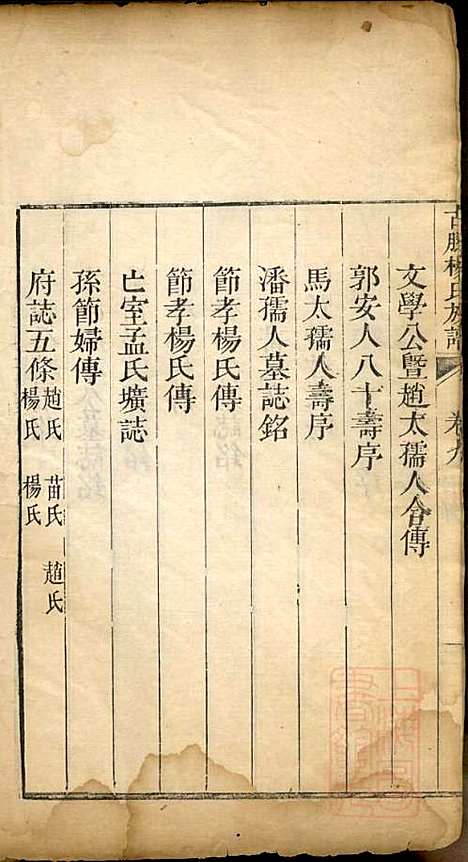 古勝楊氏族譜 卷九
文學公暨趙太孺人合傳
郭安人八十壽序
馬太孺人壽序
潘孺人墓誌銘
節孝楊氏傳
節孝楊氏傳
亡室孟氏壙誌
孫節婦傳
府誌五條 趙氏 苗氏 趙氏
楊氏 楊氏